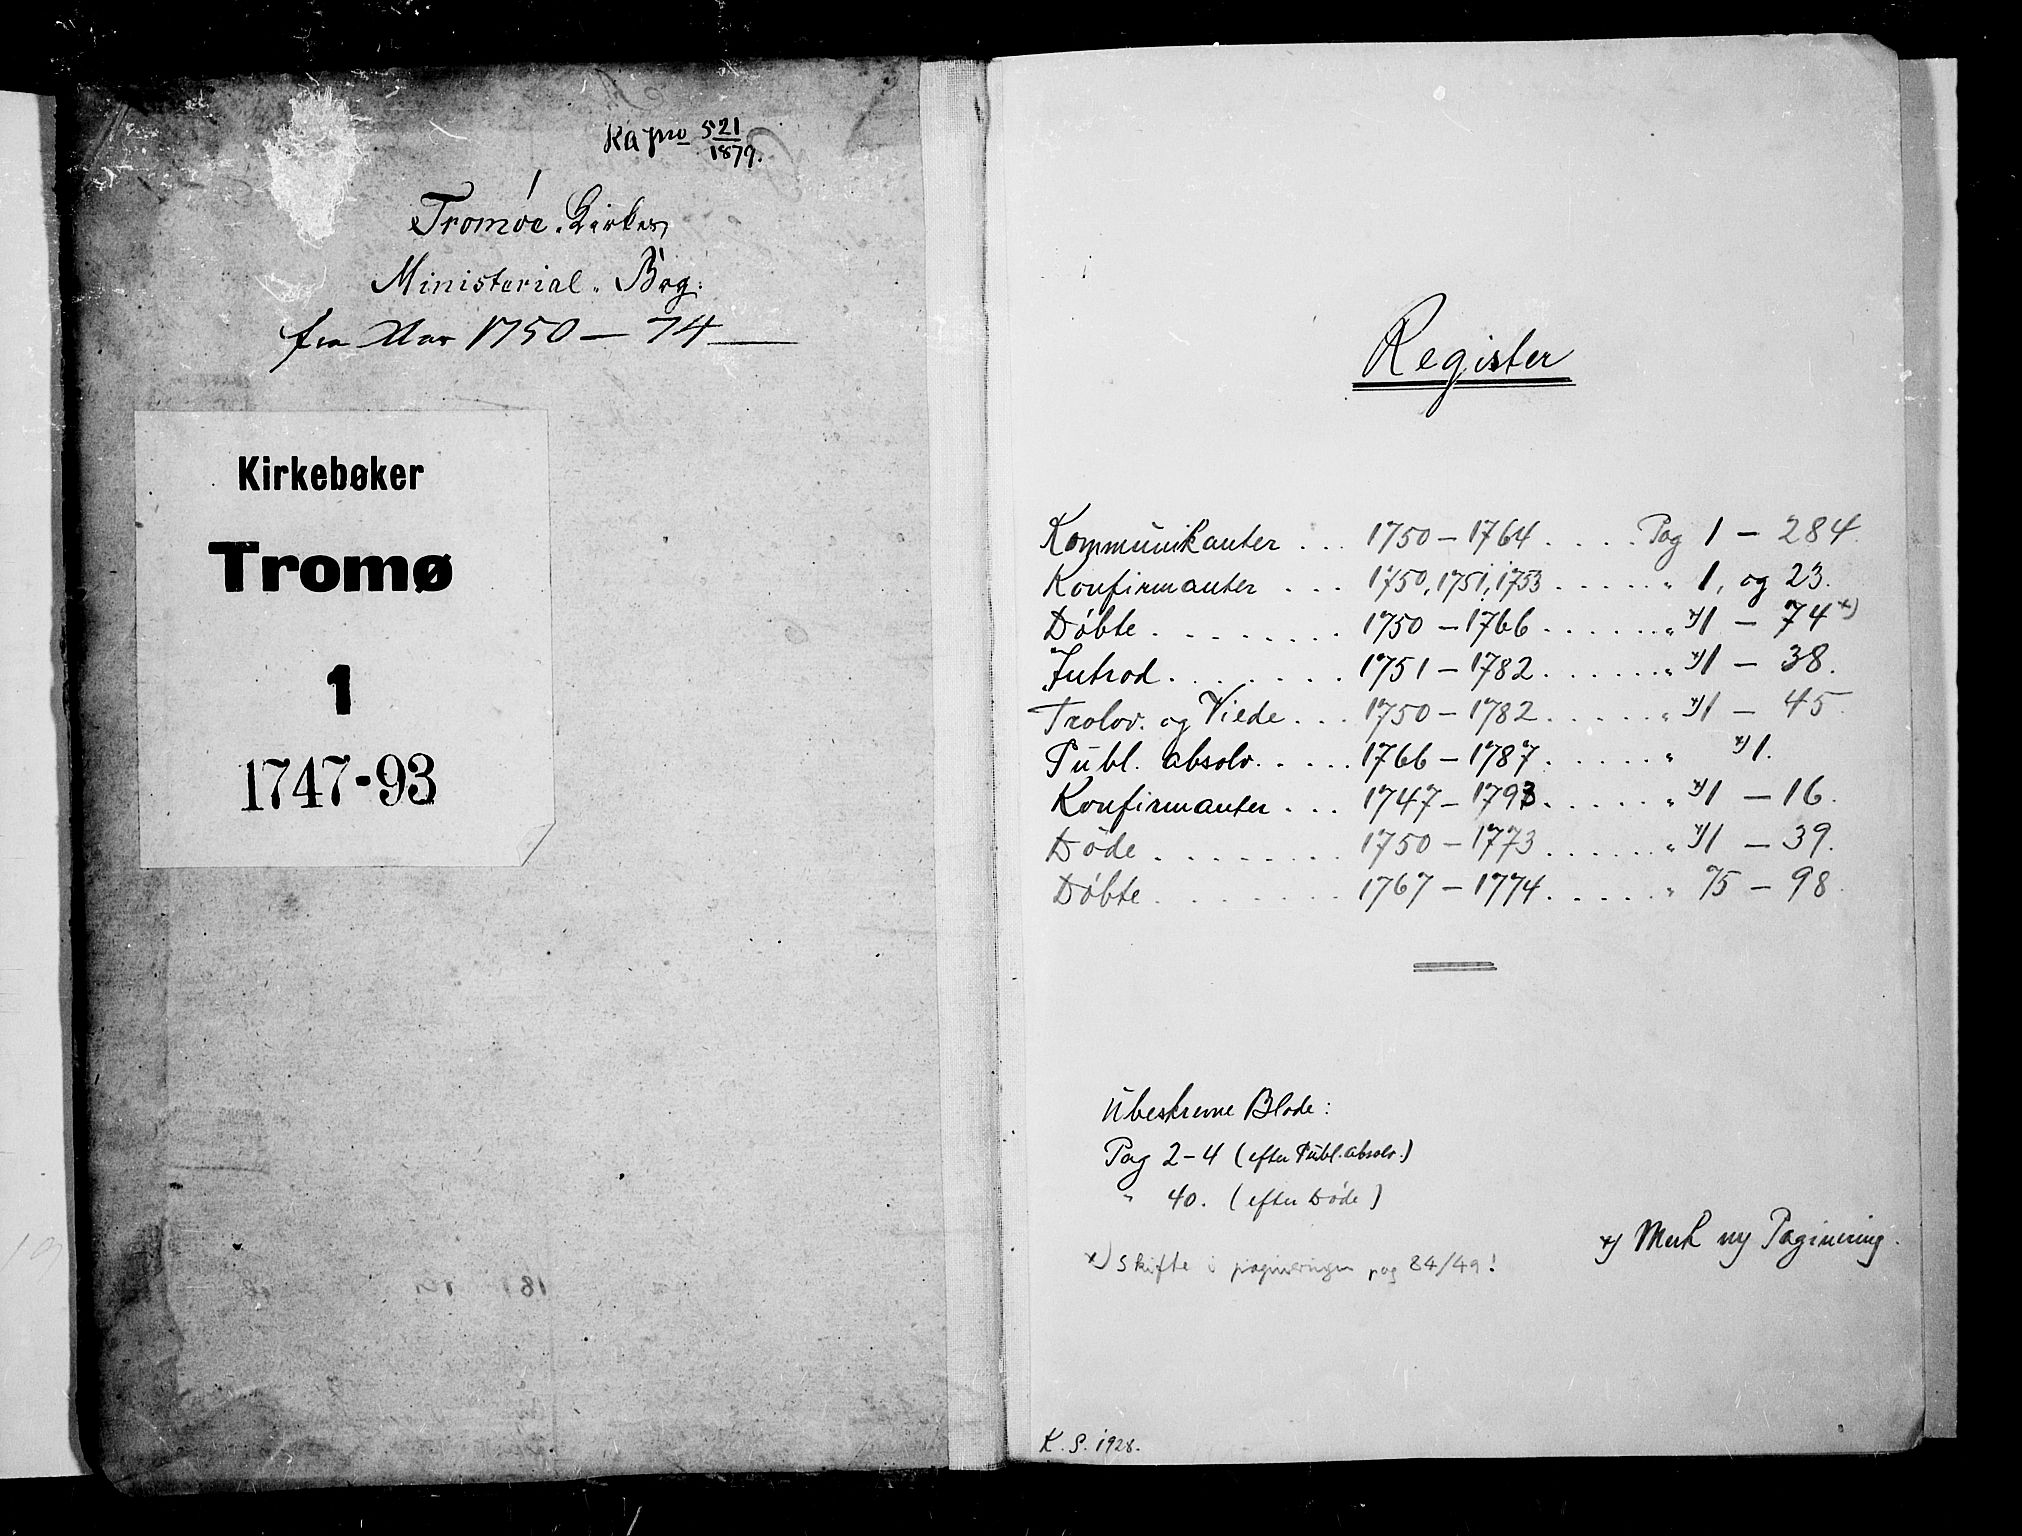 Ka pro 521/1879.
Tromøe. Kirkes
Ministerial. Bog:
fra Aar 1750 — 74
Kirkebøker
Tromø
1
1747-93
Register
Kommunikanter . . . 1750 — 1764 . . . . . Pag 1 — 284.
Konfirmanter . . . 1750, 1751, 1753 . . . . . . „ 1, og 23.
Døbte . . . . . . . . 1750 — 1766 . . . . . . „ x)1 — 74 x)
Introd . . . . . . . 1751 — 1782 . . . . . . „ x)1 — 38.
Trolov. og Viede . . . 1750 — 1782 . . . . . . „ x)1 — 45
Publ. absolv. . . . . 1766 — 1787 . . . . . . „ x)1.
Konfirmanter . . . 1747 — 1793 . . . . . . „ x)1 — 16.
Døde . . . . . . . . 1750 — 1773 . . . . . . „ x)1 — 39.
Døbte . . . . . . . . 1767 — 1774 . . . . . . „ 75 — 98.
Ubeskrevne Blade:
Pag 2 – 4 (efter Publ. absolv.)
„ 40. (efter Døde)
x) Merk ny Paginering.
x) Skifte i pagineringen pag 84/49!
K. S. 1928.